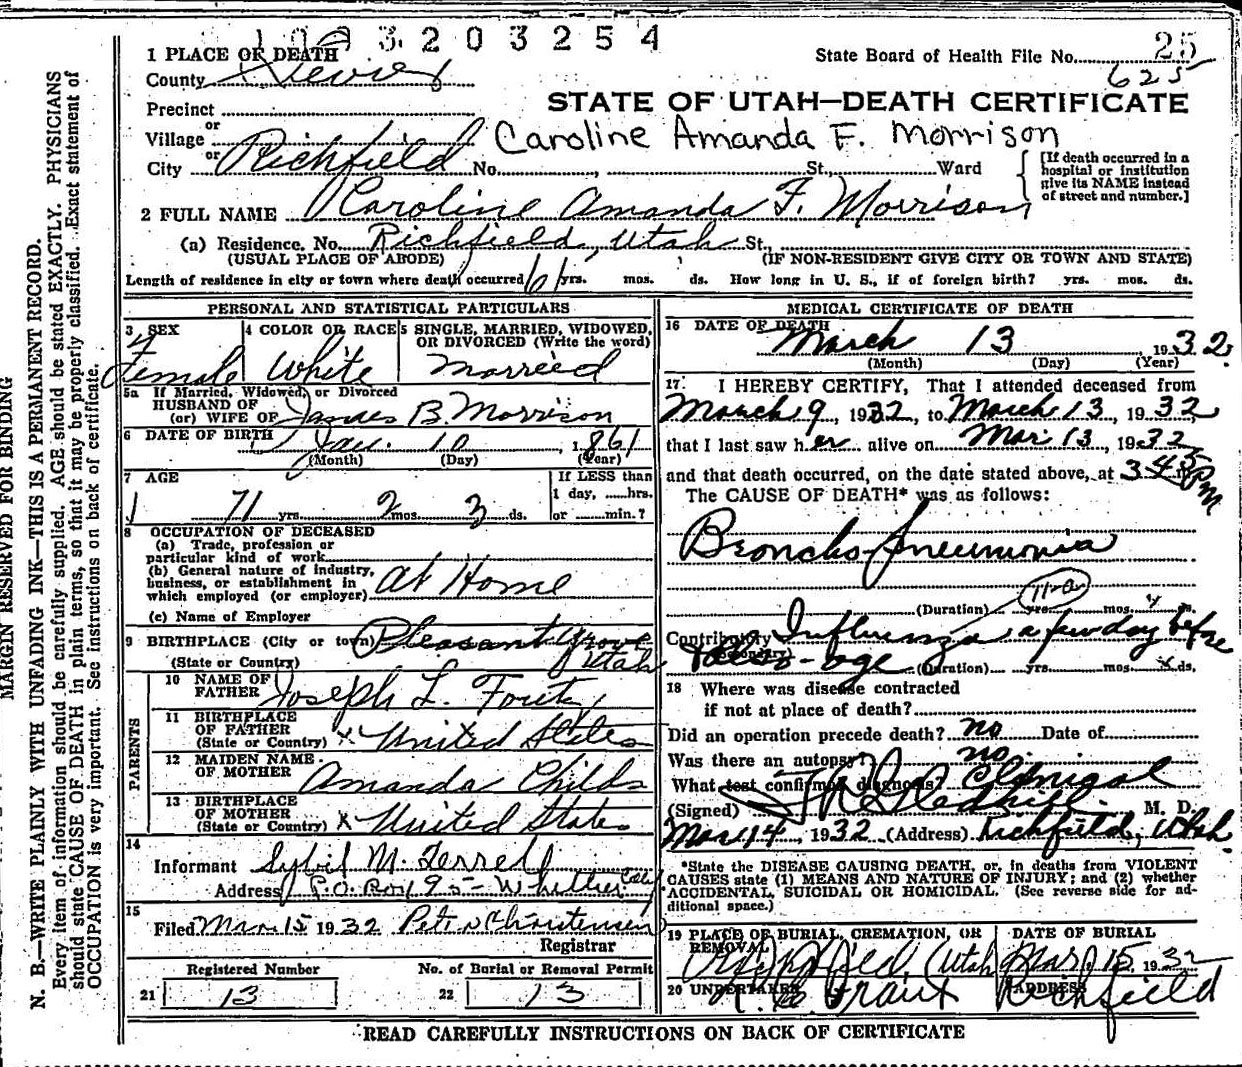 1 0 3 2 0 3 2 5 4
1 PLACE OF DEATH
State Board of Health File No. 25
625
County Sevier
STATE OF UTAH—DEATH CERTIFICATE
Precinct
or
Village
Caroline Amanda F. Morrison
or
City Richfield No. , St., Ward
[If death occurred in a hospital or institution give its NAME instead of street and number.]
2 FULL NAME Caroline Amanda F. Morrison
(a) Residence. No. Richfield, Utah St.,
(USUAL PLACE OF ABODE) (IF NON-RESIDENT GIVE CITY OR TOWN AND STATE)
Length of residence in city or town where death occurred 61 yrs. mos. ds. How long in U. S., if of foreign birth? yrs. mos. ds.
PERSONAL AND STATISTICAL PARTICULARS
3 SEX
Female
4 COLOR OR RACE
White
5 SINGLE, MARRIED, WIDOWED,
OR DIVORCED (Write the word)
Married
5a If Married, Widowed, or Divorced
HUSBAND OF
(or) WIFE OF James B. Morrison
6 DATE OF BIRTH Jan. 10, 1861
(Month) (Day) (Year)
7 AGE
71 yrs. 2 mos. 3 ds.
If LESS than
1 day, ......hrs.
or ........min.?
8 OCCUPATION OF DECEASED
(a) Trade, profession or
particular kind of work
(b) General nature of industry,
business, or establishment in
which employed (or employer) at Home
(c) Name of Employer
9 BIRTHPLACE (City or town) Pleasant Grove
(State or Country) Utah
PARENTS
10 NAME OF
FATHER Joseph L. Foutz
11 BIRTHPLACE
OF FATHER
(State or Country) x United States
12 MAIDEN NAME
OF MOTHER Amanda Childs
13 BIRTHPLACE
OF MOTHER
(State or Country) x United States
14
Informant Sybil M. Terrell
Address P.O. Box 95 - Whittier Calif
15
Filed Mar. 15 1932 Peter Christensen
Registrar
Registered Number
21 13
No. of Burial or Removal Permit
22 13
MEDICAL CERTIFICATE OF DEATH
16 DATE OF DEATH
March 13 1932.
(Month) (Day) (Year)
17. I HEREBY CERTIFY, That I attended deceased from
March 9, 1932, to March 13, 1932,
that I last saw her alive on Mar 13, 1932
and that death occurred, on the date stated above, at 3 45 Pm
The CAUSE OF DEATH* was as follows:
Broncho-pneumonia
(Duration) yrs. mos. 4 ds.
Contributory Influenza a few day before
(Secondary) also - age (Duration) yrs. mos. x ds.
18 Where was disease contracted
if not at place of death?
Did an operation precede death? no Date of
Was there an autopsy? no.
What test confirmed diagnosis? Clinical
(Signed) M. D.
Mar 14, 1932 (Address) Richfield, Utah.
*State the DISEASE CAUSING DEATH, or, in deaths from VIOLENT
CAUSES state (1) MEANS AND NATURE OF INJURY; and (2) whether
ACCIDENTAL, SUICIDAL OR HOMICIDAL. (See reverse side for ad-
ditional space.)
19 PLACE OF BURIAL, CREMATION, OR
REMOVAL
Richfield, Utah
DATE OF BURIAL
Mar. 15, 1932
20 UNDERTAKER
ADDRESS
Richfield
READ CAREFULLY INSTRUCTIONS ON BACK OF CERTIFICATE
MARGIN RESERVED FOR BINDING
N. B.—WRITE PLAINLY WITH UNFADING INK—THIS IS A PERMANENT RECORD.
Every item of information should be carefully supplied. AGE should be stated EXACTLY. PHYSICIANS
should state CAUSE OF DEATH in plain terms, so that it may be properly classified. Exact statement of
OCCUPATION is very important. See instructions on back of certificate.